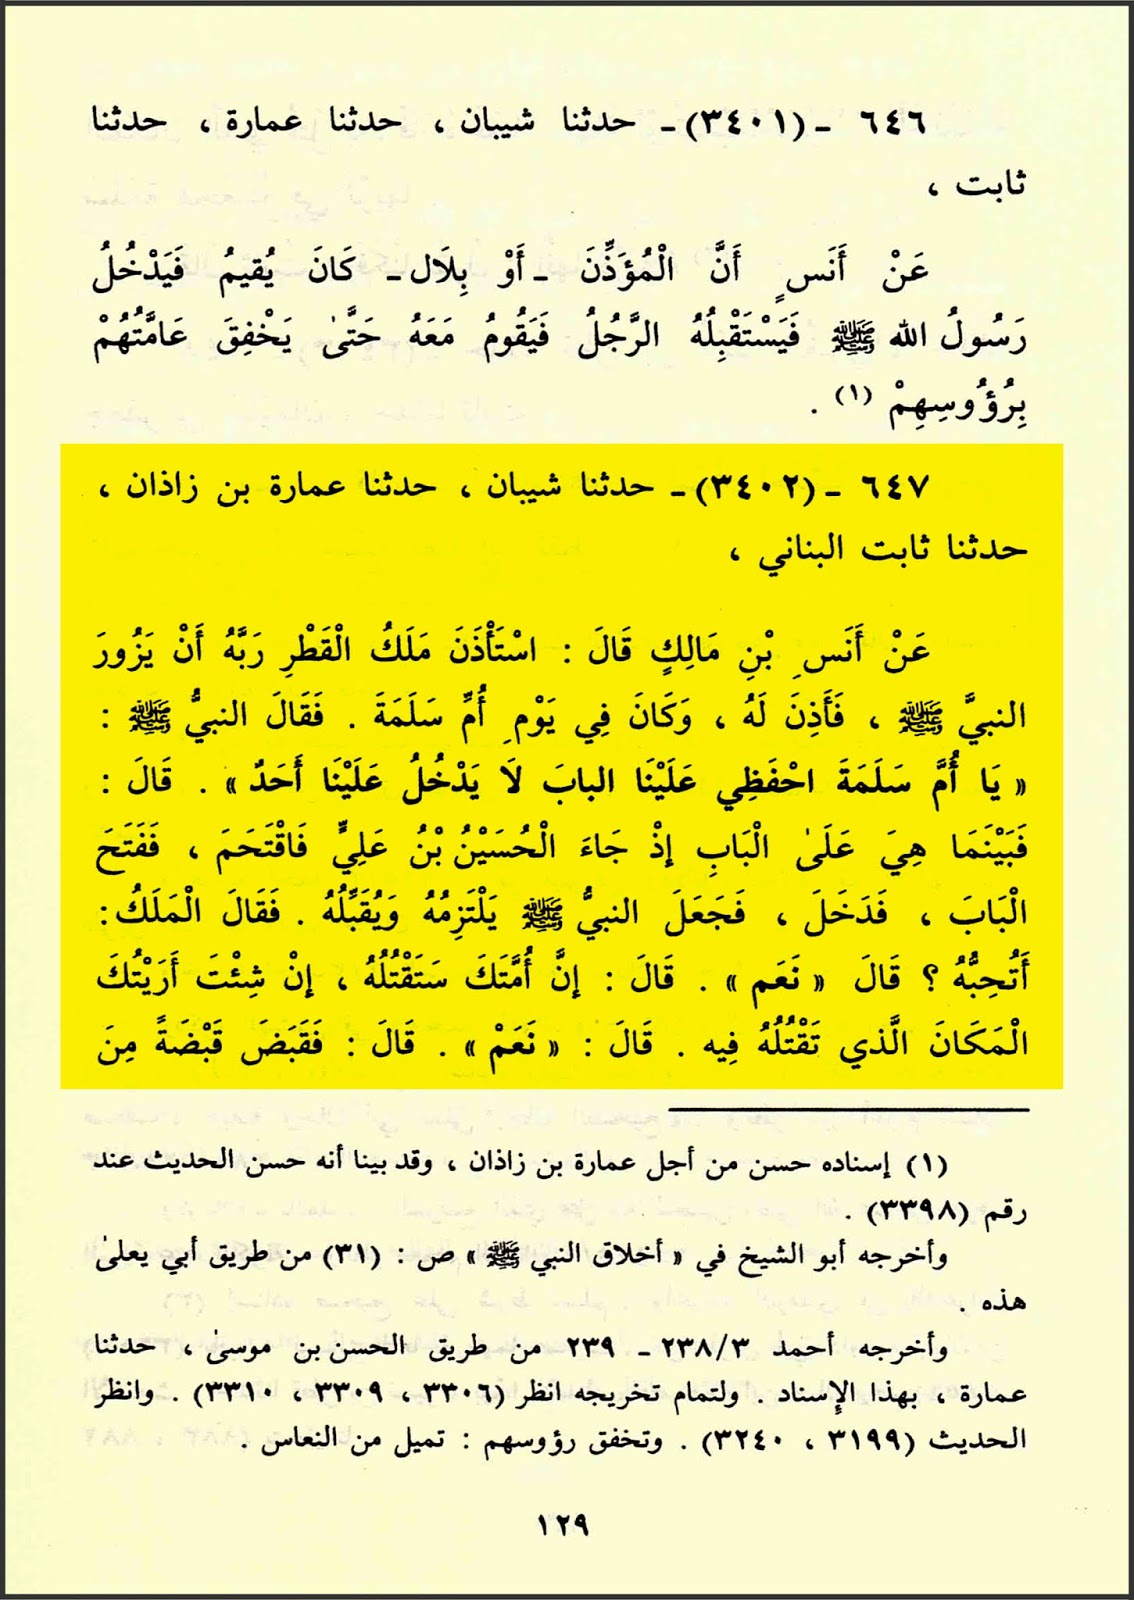 ٦٤٦ ـ (٣٤٠١)ـ حدثنا شيبان ، حدثنا عمارة ، حدثنا
ثابت ،
عَنْ أَنَسٍ أَنَّ الْمُؤَذِّنَ ـ أَوْ بِلَال ـ كَانَ يُقيمُ فَيَدْخُلُ
رَسُولُ الله ﷺ فَيَسْتَقْبِلُهُ الرَّجُلُ فَيَقُومُ مَعَهُ حَتَّىٰ يَخْفِقَ عَامَّتُهُمْ
بِرُؤُوسِهِمْ (١) .
٦٤٧ ـ (٣٤٠٢)ـ حدثنا شيبان ، حدثنا عمارة بن زاذان ،
حدثنا ثابت البناني ،
عَنْ أَنَسِ بْنِ مَالِكٍ قَالَ : اسْتَأْذَنَ مَلَكُ الْقَطْرِ رَبَّهُ أَنْ يَزُورَ
النبيَّ ﷺ ، فَأَذِنَ لَهُ ، وَكَانَ فِي يَوْمِ أُمِّ سَلَمَةَ . فَقَالَ النبيُّ ﷺ :
« يَا أُمَّ سَلَمَةَ احْفَظِي عَلَيْنَا البابَ لَا يَدْخُلُ عَلَيْنَا أَحَدٌ » . قَالَ :
فَبَيْنَمَا هِيَ عَلَىٰ الْبَابِ إِذْ جَاءَ الْحُسَيْنُ بْنُ عَلِيٍّ فَاقْتَحَمَ ، فَفَتَحَ
الْبَابَ ، فَدَخَلَ ، فَجَعَلَ النبيُّ ﷺ يَلْتَزِمُهُ وَيُقَبِّلُهُ . فَقَالَ الْمَلَكُ :
أَتُحِبُّهُ ؟ قَالَ « نَعَم » . قَالَ : إِنَّ أُمَّتَكَ سَتَقْتُلُهُ ، إِنْ شِئْتَ أَرَيْتُكَ
الْمَكَانَ الَّذي تَقْتُلُهُ فِيه . قَالَ : « نَعَمْ » . قَالَ : فَقَبَضَ قَبْضَةً مِنَ
(١) إسناده حسن من أجل عمارة بن زاذان ، وقد بينا أنه حسن الحديث عند
رقم (٣٣٩٨) .
وأخرجه أبو الشيخ في « أخلاق النبي ﷺ » ص : (٣١) من طريق أبي يعلىٰ
هذه .
وأخرجه أحمد ٢٣٨/٣ ـ ٢٣٩ من طريق الحسن بن موسىٰ ، حدثنا
عمارة ، بهذا الإِسناد . ولتمام تخريجه انظر (٣٣٠٦ ، ٣٣٠٩ ، ٣٣١٠) . وانظر
الحديث (٣١٩٩ ، ٣٢٤٠) . وتخفق رؤوسهم : تميل من النعاس .
١٢٩